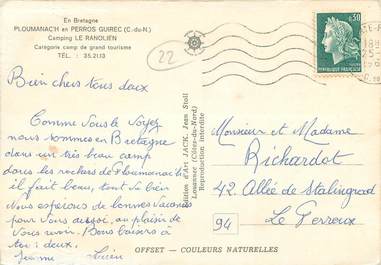 En Bretagne
PLOUMANAC'H en PERROS GUIREC (C.-du-N.)
Camping LE RANOLIEN
Catégorie camp de grand tourisme
TÉL. : 35.21.13
22
0,30
REPUBLIQUE FRANÇAISE
Bien chers tous deux
Comme vous le voyez
nous sommes en Bretagne
dans un très beau camp
dans les rochers de Ploumanach
il fait beau, tout va bien
Nous espérons de bonnes vacances
pour vous aussi, au plaisir de
vous revoir. Bons baisers à
tous deux.
Lucien
Edition d'Art JACK, Jean Stoll
Louannec (Côtes-du-Nord)
Reproduction interdite
Monsieur et Madame
Richardot
42 Allée de Stalingrad
94 Le Perreux
OFFSET — COULEURS NATURELLES